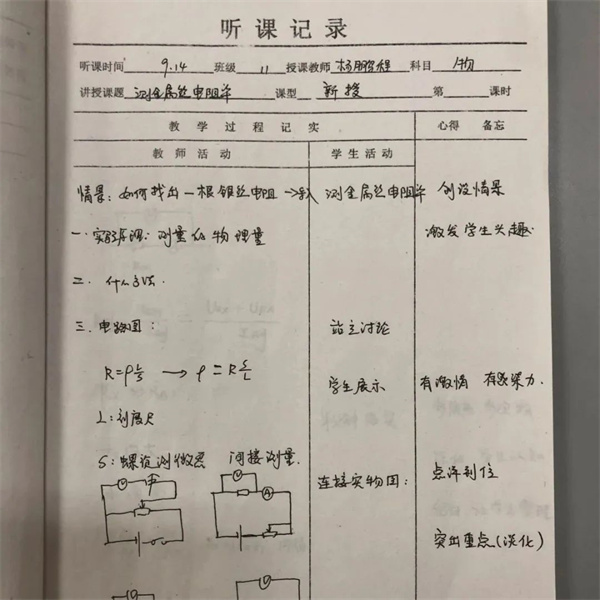 听课记录
听课时间 9.14 班级 11 授课教师 杨鹏程 科目 物
讲授课题 测金属丝电阻率 课型 新授 第 课时
教学过程记实 心得 备忘
教师活动 学生活动
情景：如何找出一根银丝电阻 → 引入 测金属丝电阻率 创设情景
一.实验原理：测量什么物理量 激发学生兴趣
二. 什么方法.
三.电路图： 站立讨论
R=ρL/S → ρ=RS/L 学生展示 有激情 有感染力.
L：刻度尺
S：螺旋测微器 间接测量. 连接实物图： 点评到位
V V A
突出重点(淡化)